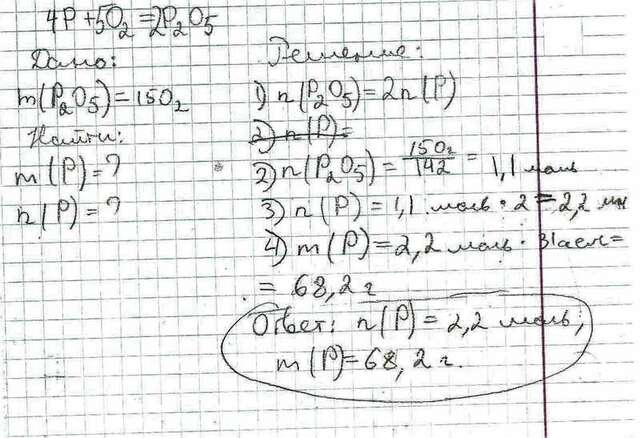 4P + 5O₂ = 2P₂O₅
Дано:
m(P₂O₅) = 150г
Найти:
m(P) = ?
n(P) = ?
Решение:
1) n(P₂O₅) = 2n(P)
2) n(P) =
2) n(P₂O₅) = 150г/142 = 1,1 моль
3) n(P) = 1,1 моль · 2 = 2,2 м
4) m(P) = 2,2 моль · 31аем =
= 68,2 г
Ответ: n(P) = 2,2 моль;
m(P) = 68,2 г.